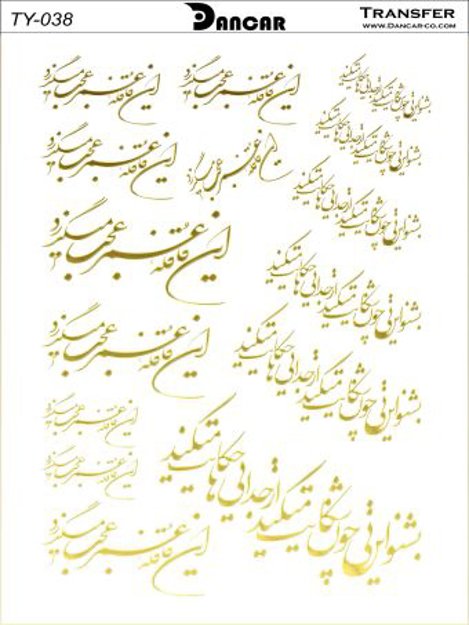 TY-038
DANCAR
TRANSFER
WWW.DANCAR-CO.COM
این قافله عمر عجب میگذرد
این قافله عمر عجب میگذرد
بشنو این نی چون شکایت میکند
از جدایی ها حکایت میکند
این قافله عمر عجب میگذرد
این قافله عمر عجب میگذرد
بشنو این نی چون شکایت میکند
از جدایی ها حکایت میکند
بشنو این نی چون شکایت میکند
از جدایی ها حکایت میکند
این قافله عمر عجب میگذرد
بشنو این نی چون شکایت میکند
از جدایی ها حکایت میکند
این قافله عمر عجب میگذرد
بشنو این نی چون شکایت میکند
از جدایی ها حکایت میکند
این قافله عمر عجب میگذرد
این قافله عمر عجب میگذرد
بشنو این نی چون شکایت میکند
از جدایی ها حکایت میکند
این قافله عمر عجب میگذرد